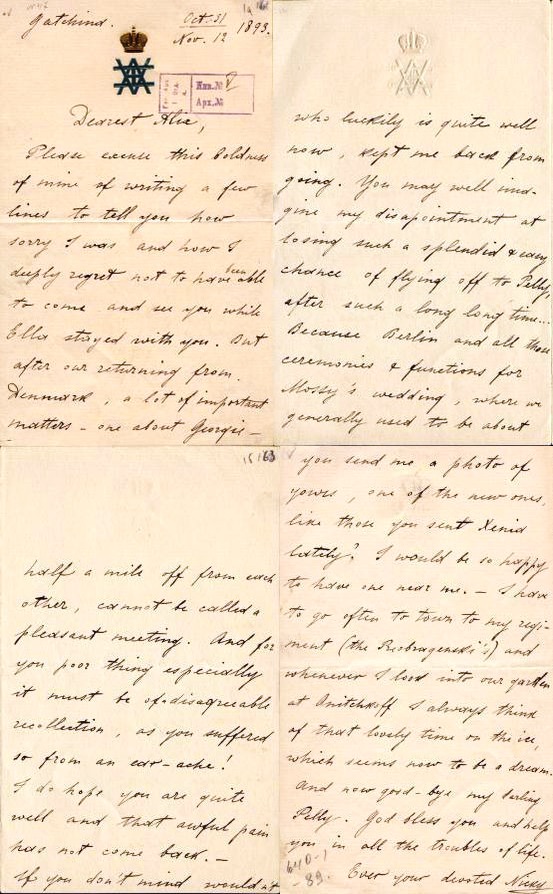 Gatchina.
Oct. 31
Nov. 12 1893.
Инв.№
Арх.№
Dearest Alix,
Please excuse this boldness
of mine of writing a few
lines to tell you how
sorry I was and how I
deeply regret not to have been able
to come and see you while
Ella stayed with you. But
after our returning from
Denmark, a lot of important
matters – one about Georgie –
who luckily is quite well
now, kept me back from
going. You may well ima-
gine my disapointment at
losing such a splendid & easy
chance of flying off to Pelly
after such a long long time...
Because Berlin and all those
ceremonies & functions for
Mossy's wedding, where we
generally used to be about
15163
half a mile off from each
other, cannot be called a
pleasant meeting. And for
you poor thing especially
it must be of a disagreeable
recollection, as you suffered
so from an ear-ache!
I do hope you are quite
well and that awful pain
has not come back. –
If you don't mind would'nt
you send me a photo of
yours, one of the new ones,
like those you sent Xenia
lately? I would be so happy
to have one near me. – I have
to go often to town to my regi-
ment (the Preobragenski's) and
whenever I look into our garden
at Anitchkoff I always think
of that lovely time on the ice,
which seems now to be a dream.
And now good-bye my darling
Pelly. God bless you and help
you in all the troubles of life.
Ever your devoted Nicky
640-1
-89.